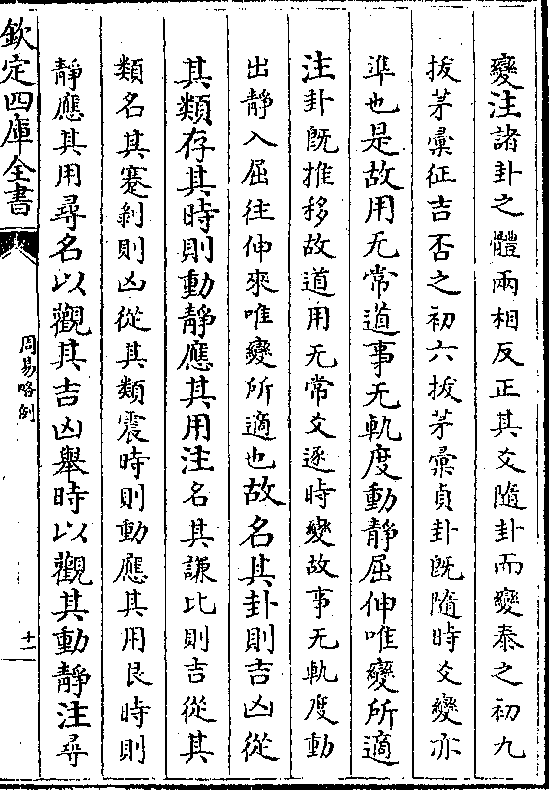 變注諸卦之體兩相反正其爻隨卦而變泰之初九
拔茅彙征吉否之初六拔茅彙貞卦既隨時爻變亦
準也是故用无常道事无軌度動靜屈伸唯變所適
注卦既推移故道用无常爻逐時變故事无軌度動
出靜入屈往伸來唯變所適也故名其卦則吉凶從
其類存其時則動靜應其用注名其謙比則吉從其
類名其蹇剝則凶從其類震時則動應其用艮時則
靜應其用尋名以觀其吉凶舉時以觀其動靜注尋
欽定四庫全書
周易略例
十一